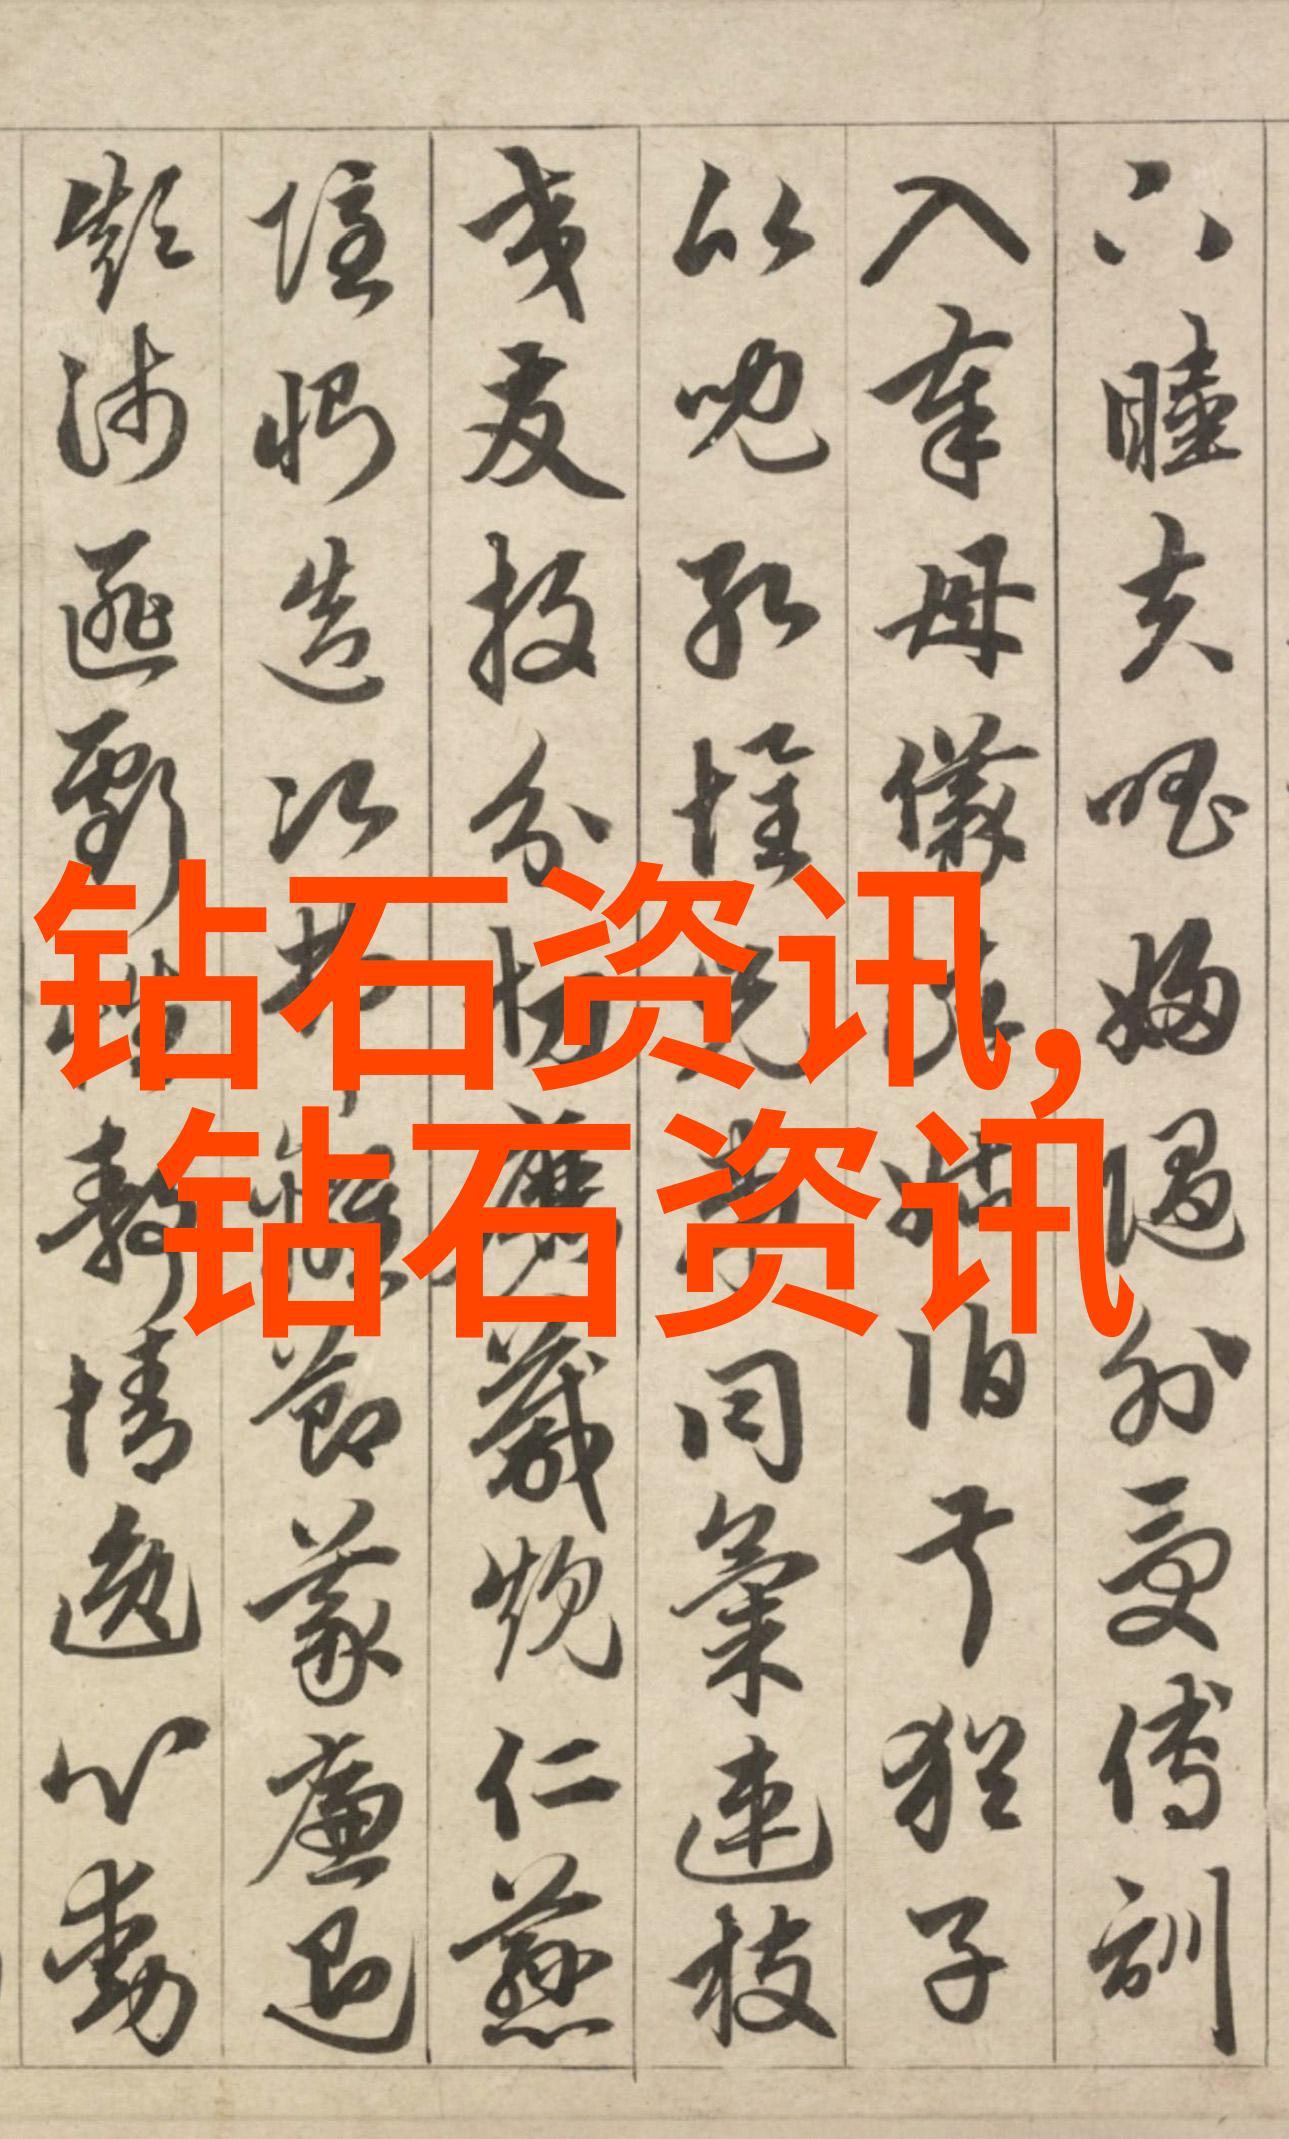 下睦夫唱婦隨外受傅訓
入奉母儀諸姑伯叔猶子
比兒孔懷兄弟同氣連枝
交友投分切磨箴規仁慈
隱惻造次弗離節義廉退
顛沛匪虧性靜情逸心動
钻石资讯,
钻石资讯